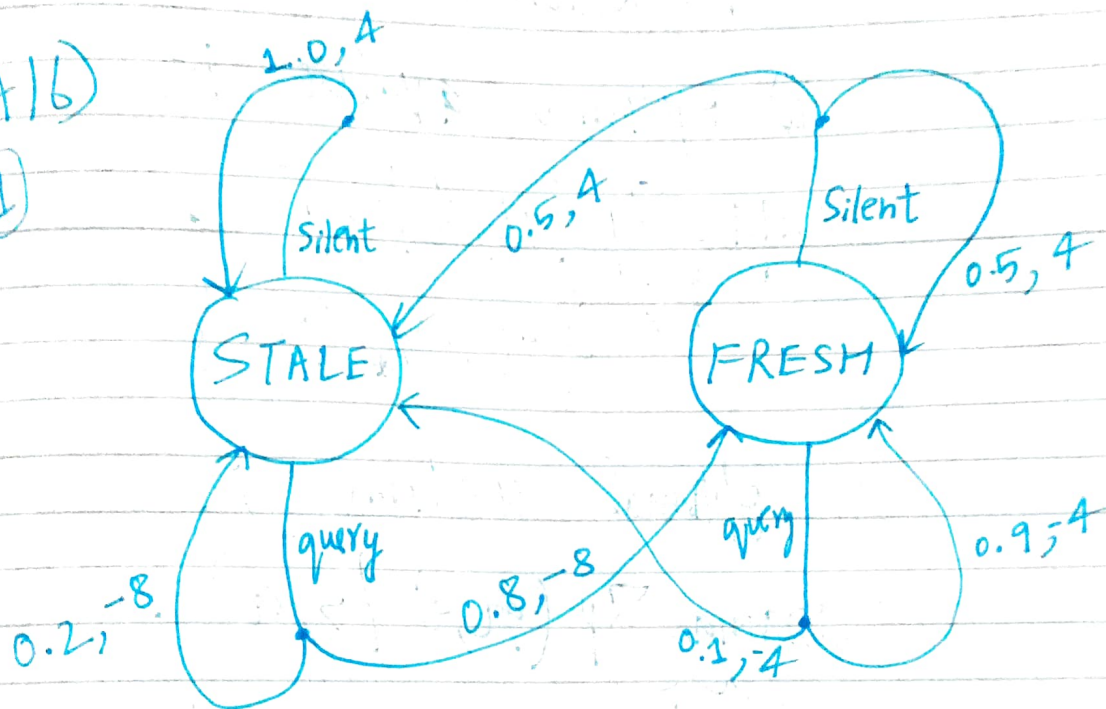 +16)
1)
1.0, 4
Silent
0.5, 4
Silent
0.5, 4
STALE
FRESH
query
0.2, -8
0.8, -8
query
0.1, -4
0.9, -4